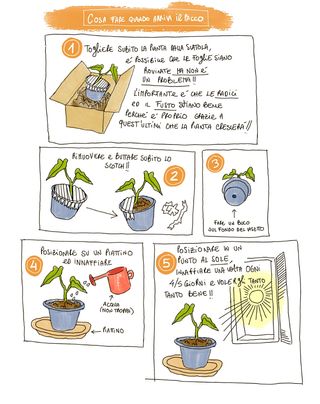 COSA FARE QUANDO ARRIVA IL PACCO
1
TOGLIERE SUBITO LA PIANTA DALLA SCATOLA,
E' POSSIBILE CHE LE FOGLIE SIANO
ROVINATE MA NON E'
UN PROBLEMA!!
L'IMPORTANTE E' CHE LE RADICI
ED IL FUSTO STIANO BENE
PERCHE' E' PROPRIO GRAZIE A
QUEST'ULTIMI CHE LA PIANTA CRESCERA'!!
RIMUOVERE E BUTTARE SUBITO LO
SCOTCH!!
2
3
FARE UN BUCO
SUL FONDO DEL VASETTO
POSIZIONARE SU UN PIATTINO
ED INNAFFIARE
4
ACQUA
(NON TROPPA)
PIATINO
5
POSIZIONARE IN UN
PUNTO AL SOLE,
INNAFFIARE UNA VOLTA OGNI
4/5 GIORNI E VOLERGLI TANTO
TANTO BENE!!